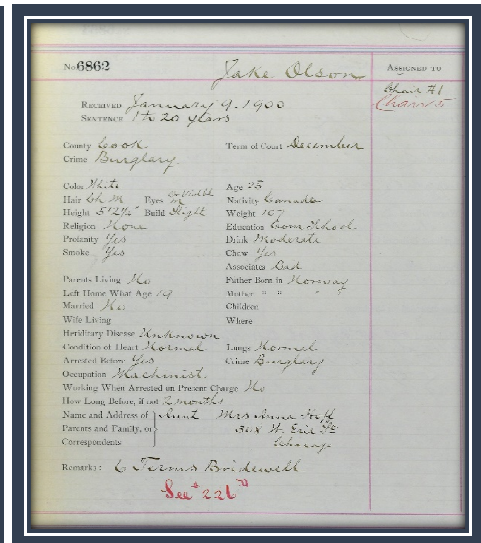 No. 6862 Jake Olson ASSIGNED TO
Chair H1
RECEIVED January 9. 1900
SENTENCE 1 to 20 years
County Cook Term of Court December
Crime Burglary.
Color White Age 25
Hair Ch M Eyes M Nativity Canada
Height 5' 2¼" Build Slight Weight 107
Religion None Education Com School
Profanity Yes Drink Moderate
Smoke Yes Chew Yes
Associates Bad
Parents Living No Father Born in Norway
Left Home What Age 19 Mother " "
Married No Children
Wife Living Where
Heriditary Disease Unknown
Condition of Heart Normal Lungs Normal
Arrested Before Yes Crime Burglary
Occupation Machinist.
Working When Arrested on Present Charge No
How Long Before, if not 2 months
Name and Address of Aunt Mrs Anna
Parents and Family, or W. Erie St
Correspondents Chicago
Remarks: 6 Terms Bridewell
See # 226